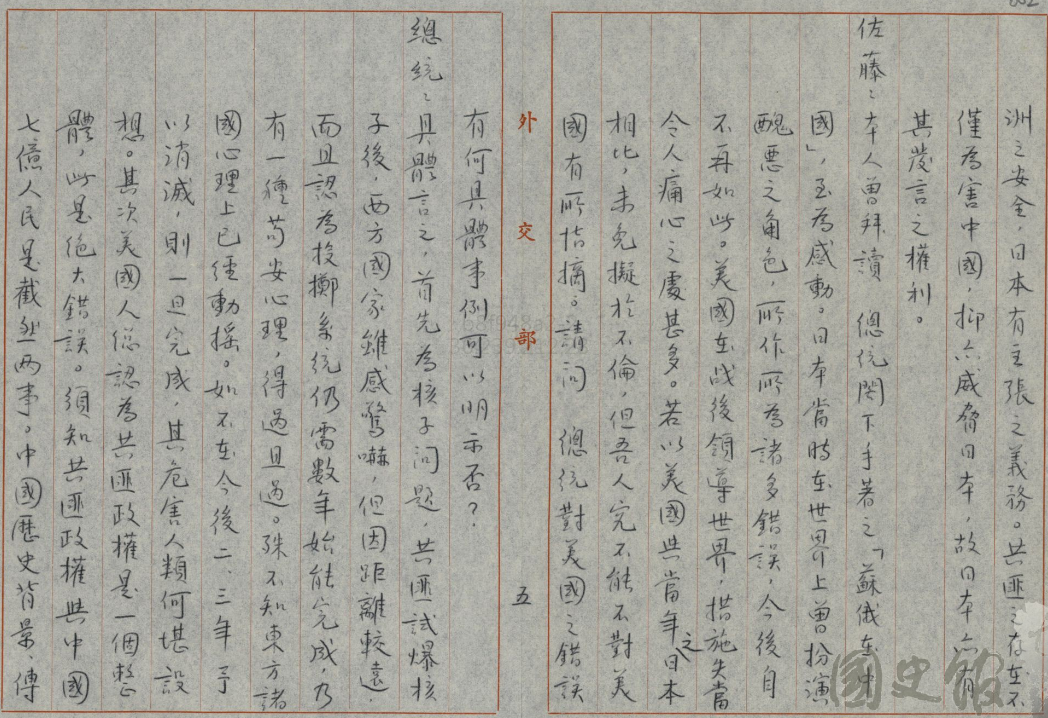 洲之安全,日本有主張之義務。共匪之存在不
僅為害中國,抑亦威脅日本,故日本亦有
其發言之權利。
佐藤:本人曾拜讀 總統閣下手著之「蘇俄在中
國」,至為感動。日本當時在世界上曾扮演
醜惡之角色,所作所為諸多錯誤,今後自
不再如此。美國在战後領導世界,措施失當
令人痛心之處甚多。若以美國與當年之日本
相比,未免擬於不倫,但吾人究不能不對美
國有所指摘。請问 總統對美國之錯誤
外交部 五
有何具體事例可以明示否?
總統:具體言之,首先為核子问題,共匪試爆核
子後,西方國家雖感驚嚇,但因距離較遠,
而且認為投擲系統仍需數年始能完成,乃
有一種苟安心理,得過且過。殊不知東方諸
國心理上已經動搖。如不在今後二、三年予
以消滅,則一旦完成,其危害人類何堪設
想。其次美國人總認為共匪政權是一個整
體,此是絕大錯誤。須知共匪政權與中國
七億人民是截然两事。中國歷史背景、傳
國史館